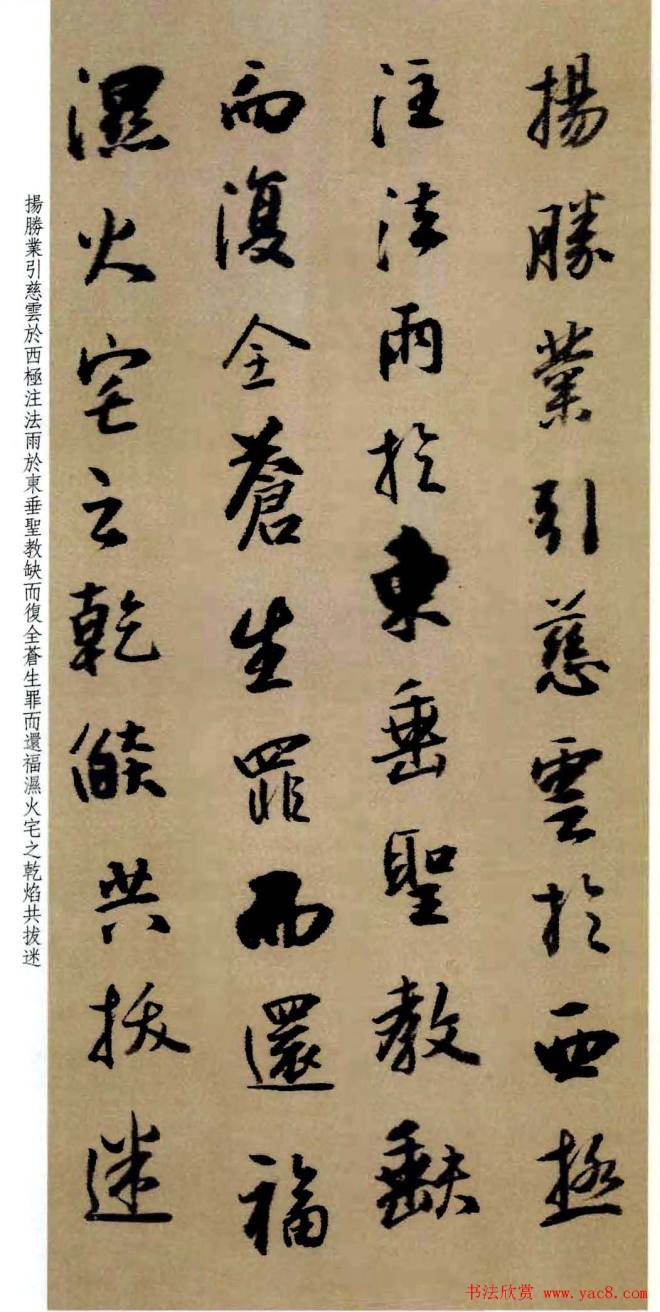 揚勝業引慈雲於西極
注法雨於東垂聖教缺
而復全蒼生罪而還福
濕火宅之乾焰共拔迷
揚勝業引慈雲於西極注法雨於東垂聖教缺而復全蒼生罪而還福濕火宅之乾焰共拔迷
书法欣赏 www.yac8.com